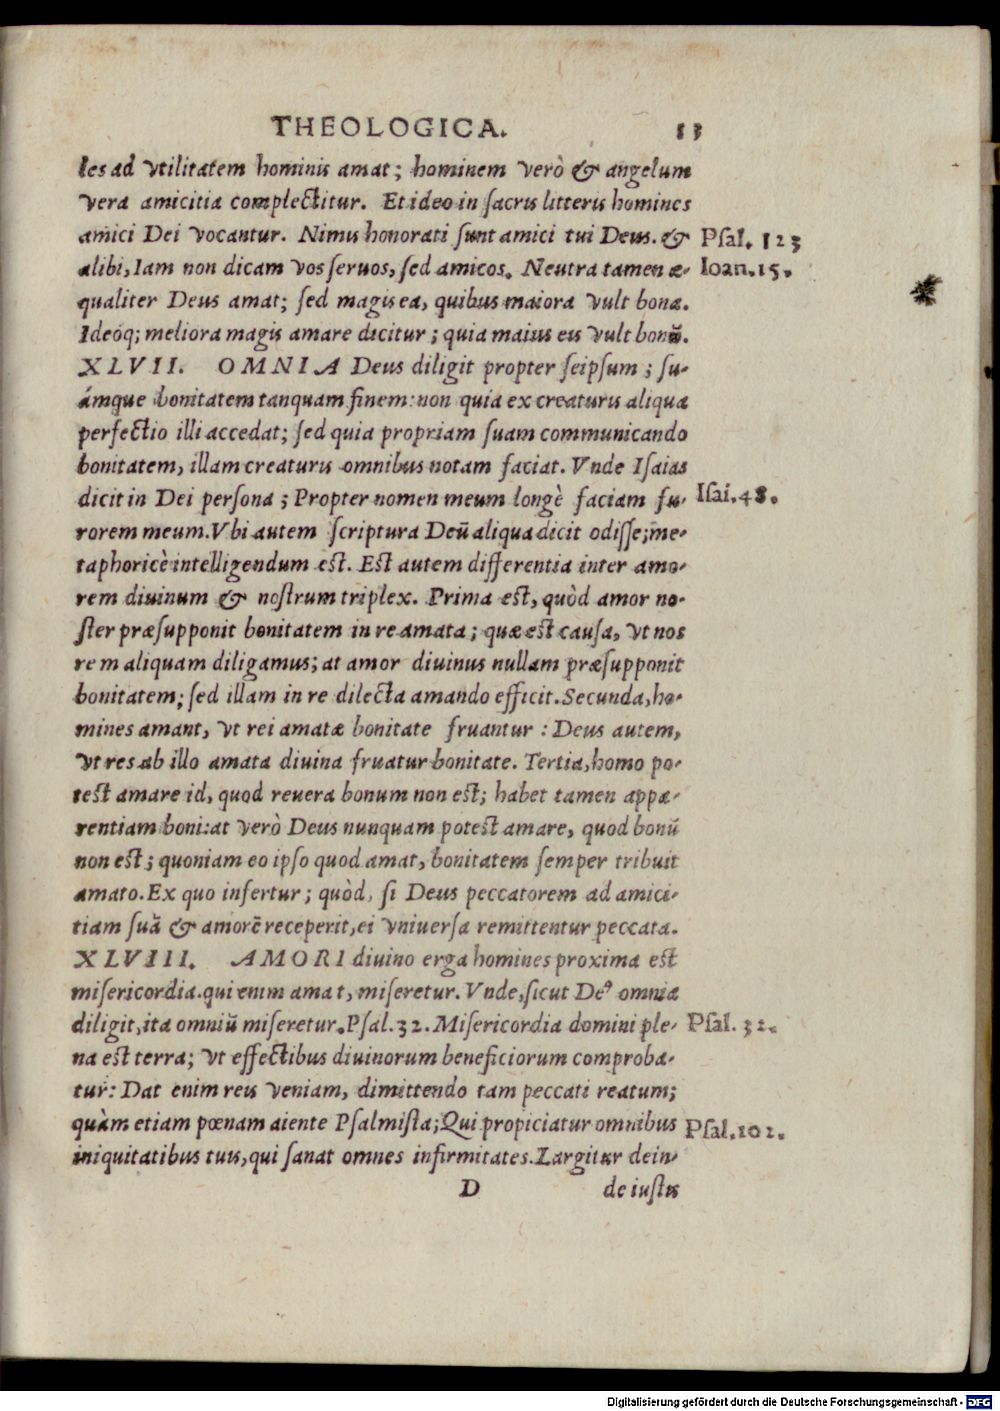 THEOLOGICA. 13
les ad vtilitatem hominis amat; hominem verò & angelum
vera amicitia complectitur. Et ideo in sacris litteris homines
amici Dei vocantur. Nimis honorati sunt amici tui Deus. & Psal. 123
alibi, Iam non dicam vos seruos, sed amicos. Neutra tamen æ- Ioan. 15.
qualiter Deus amat; sed magis ea, quibus maiora vult bona.
Ideoq; meliora magis amare dicitur; quia maius eis vult bonũ.
XLVII. OMNIA Deus diligit propter seipsum; su-
ámque bonitatem tanquam finem: non quia ex creaturis aliqua
perfectio illi accedat; sed quia propriam suam communicando
bonitatem, illam creaturis omnibus notam faciat. Vnde Isaias
dicit in Dei persona; Propter nomen meum longè faciam fu- Isai. 48.
rorem meum. Vbi autem scriptura Deũ aliqua dicit odisse; me-
taphoricè intelligendum est. Est autem differentia inter amo-
rem diuinum & nostrum triplex. Prima est, quòd amor no-
ster præsupponit bonitatem in re amata; quæ est causa, vt nos
rem aliquam diligamus; at amor diuinus nullam præsupponit
bonitatem; sed illam in re dilecta amando efficit. Secunda, ho-
mines amant, vt rei amatæ bonitate fruantur: Deus autem,
vt res ab illo amata diuina fruatur bonitate. Tertia, homo po-
test amare id, quod reuera bonum non est; habet tamen appa-
rentiam boni: at verò Deus nunquam potest amare, quod bonũ
non est; quoniam eo ipso quod amat, bonitatem semper tribuit
amato. Ex quo infertur; quòd, si Deus peccatorem ad amici-
tiam suã & amorẽ receperit, ei vniuersa remittentur peccata.
XLVIII. AMORI diuino erga homines proxima est
misericordia. qui enim amat, miseretur. Vnde, sicut Deꝰ omnia
diligit, ita omniũ miseretur. Psal. 32. Misericordia domini ple- Psal. 32.
na est terra; vt effectibus diuinorum beneficiorum comproba-
tur: Dat enim reis veniam, dimittendo tam peccati reatum;
quàm etiam pœnam aiente Psalmista; Qui propiciatur omnibus Psal. 102.
iniquitatibus tuis, qui sanat omnes infirmitates. Largitur dein-
D de iustis
Digitalisierung gefördert durch die Deutsche Forschungsgemeinschaft - DFG